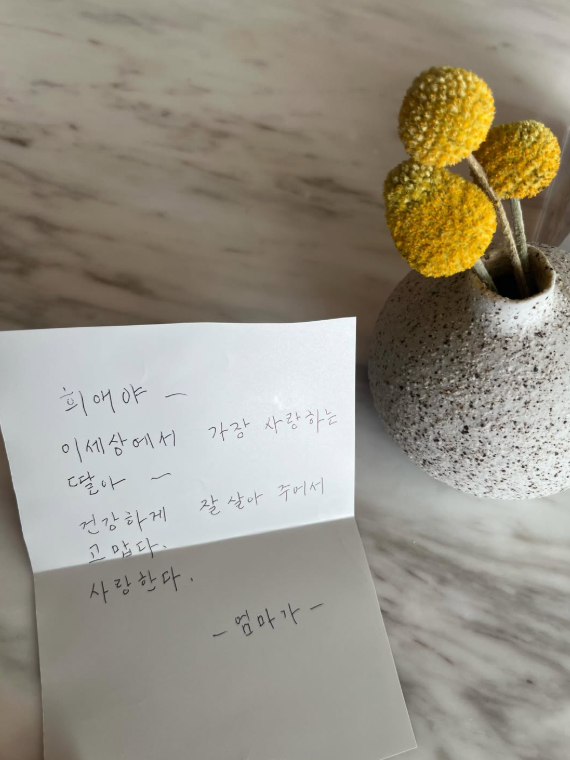 희애야 ~
이세상에서 가장 사랑하는
딸아 ~
건강하게 잘 살아 주어서
고맙다.
사랑한다.
- 엄마가 -